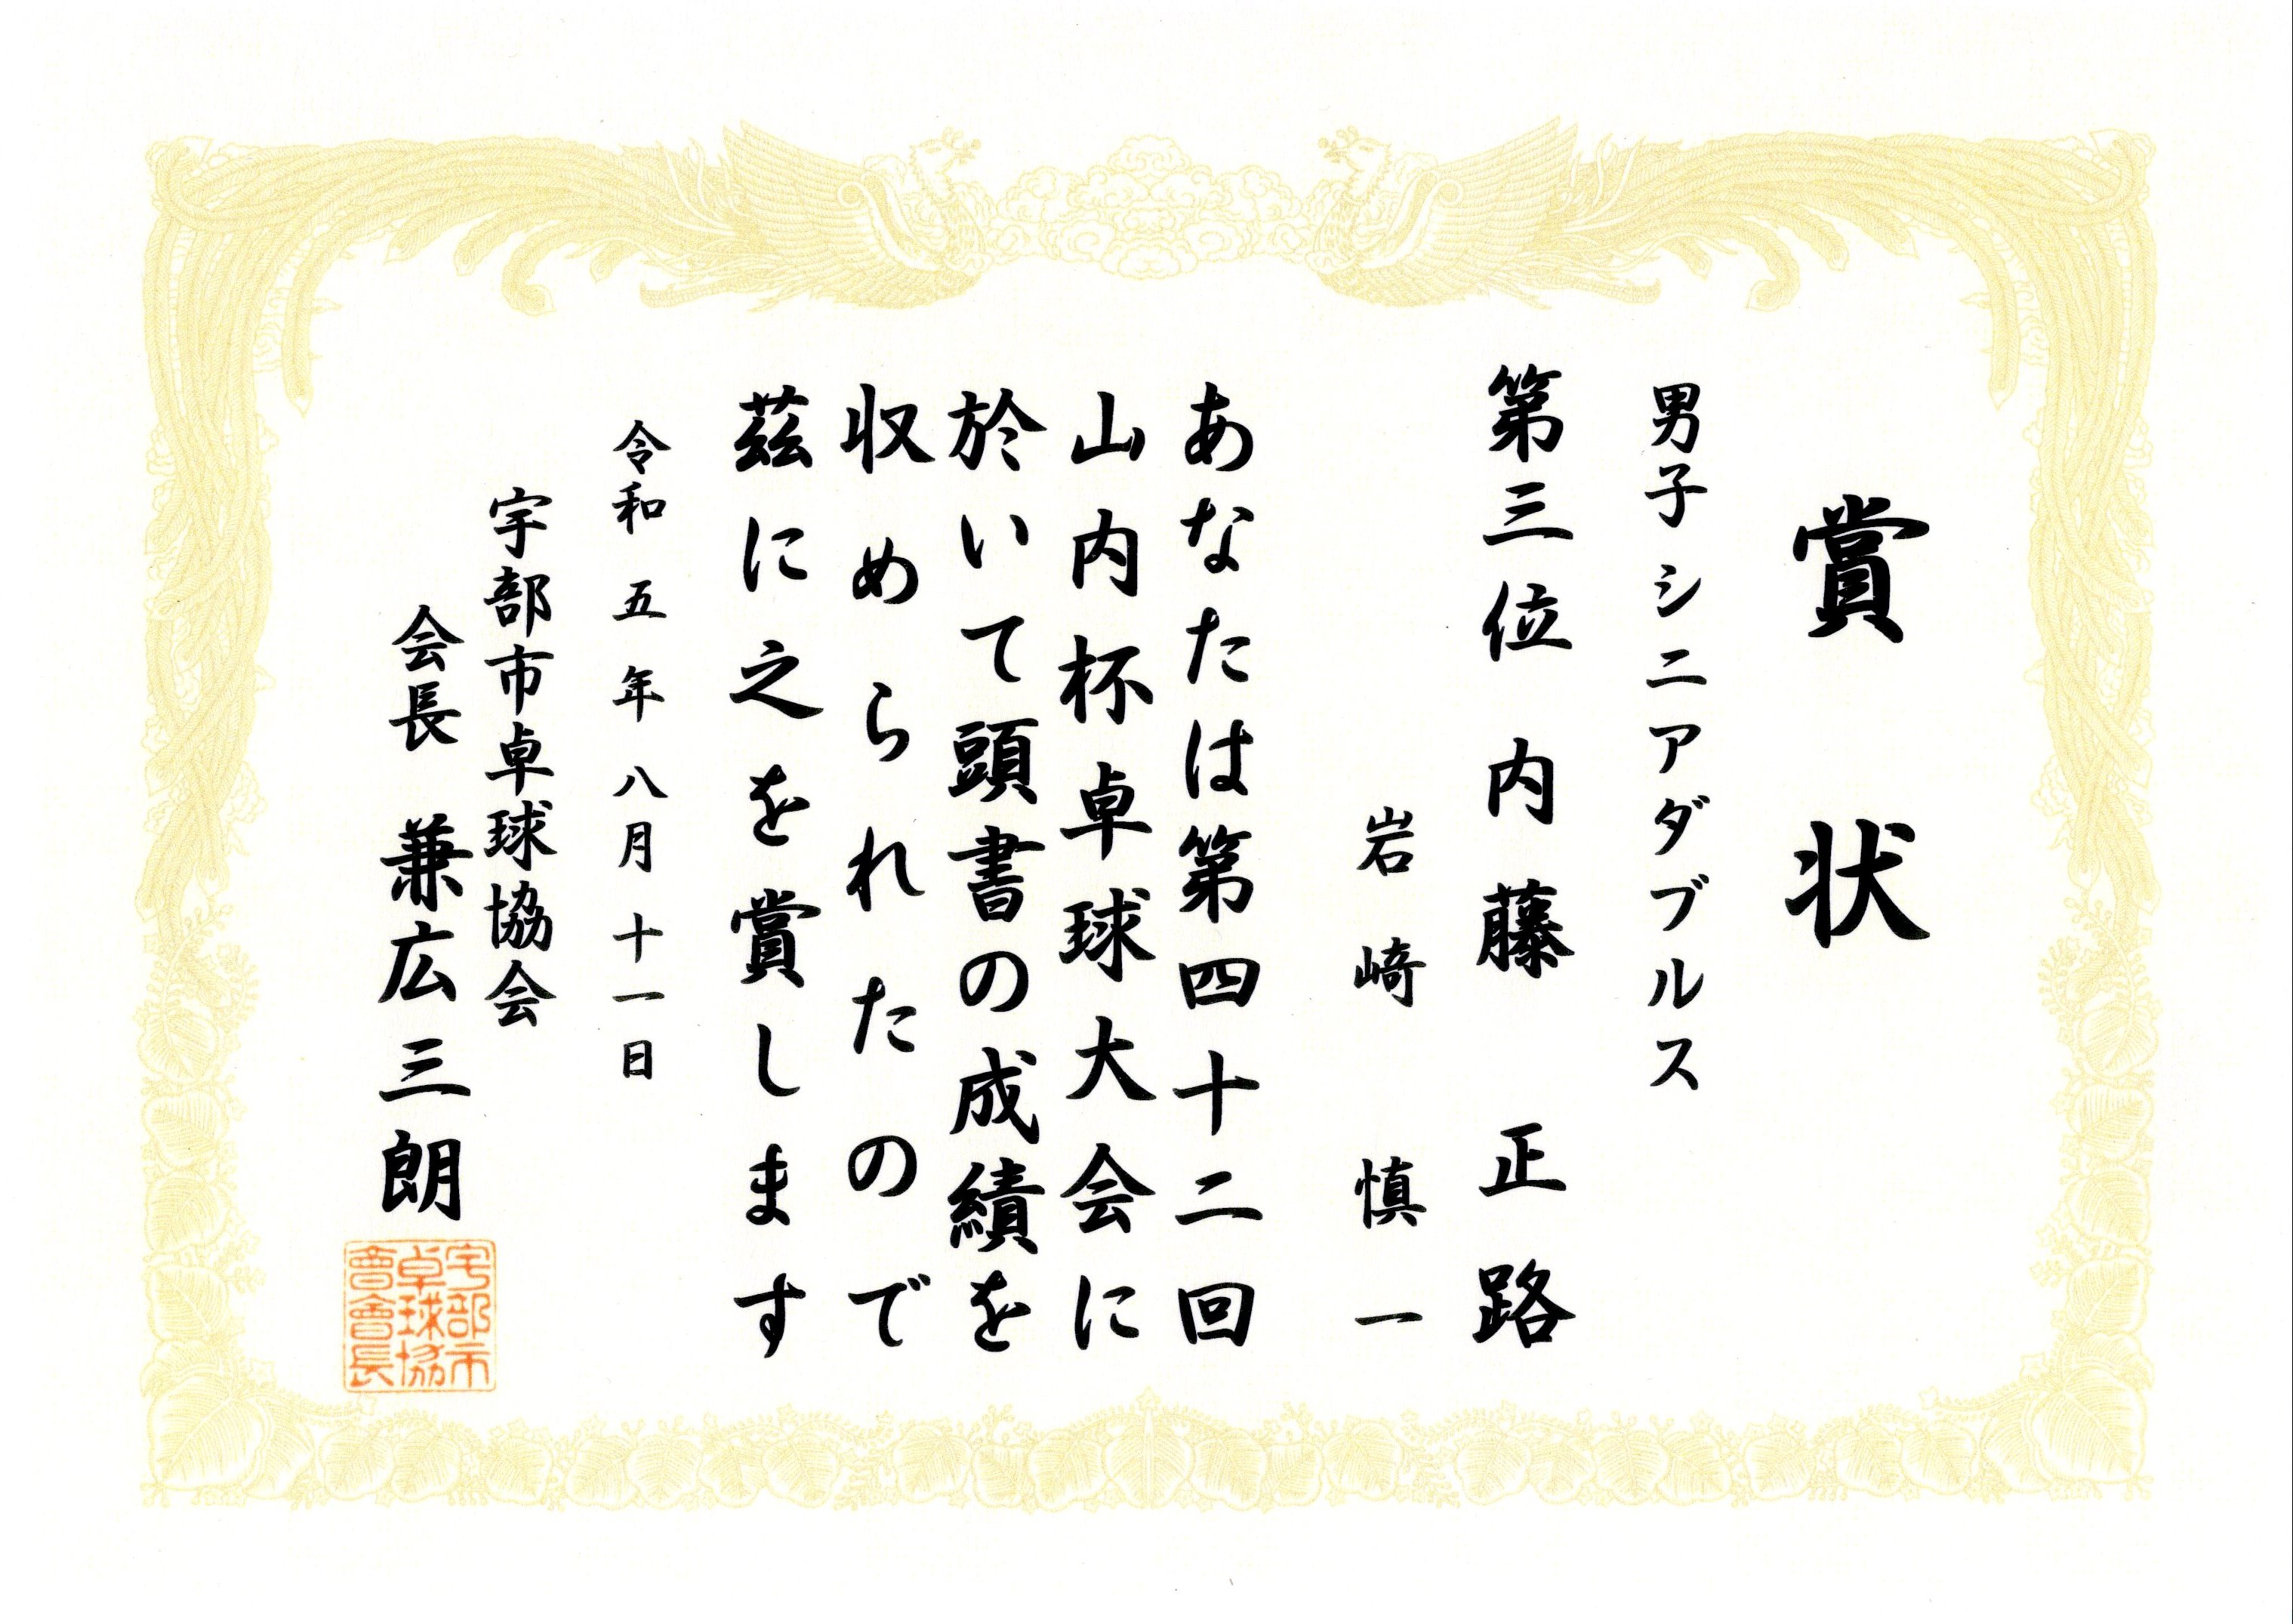 賞状
男子シニアダブルス
第三位 内藤 正路
岩崎 慎一
あなたは第四十二回
山内杯卓球大会に
於いて頭書の成績を
収められたので
茲に之を賞します
令和五年八月十一日
宇部市卓球協会
会長 兼広三朗
宇部市
卓球協
會會長